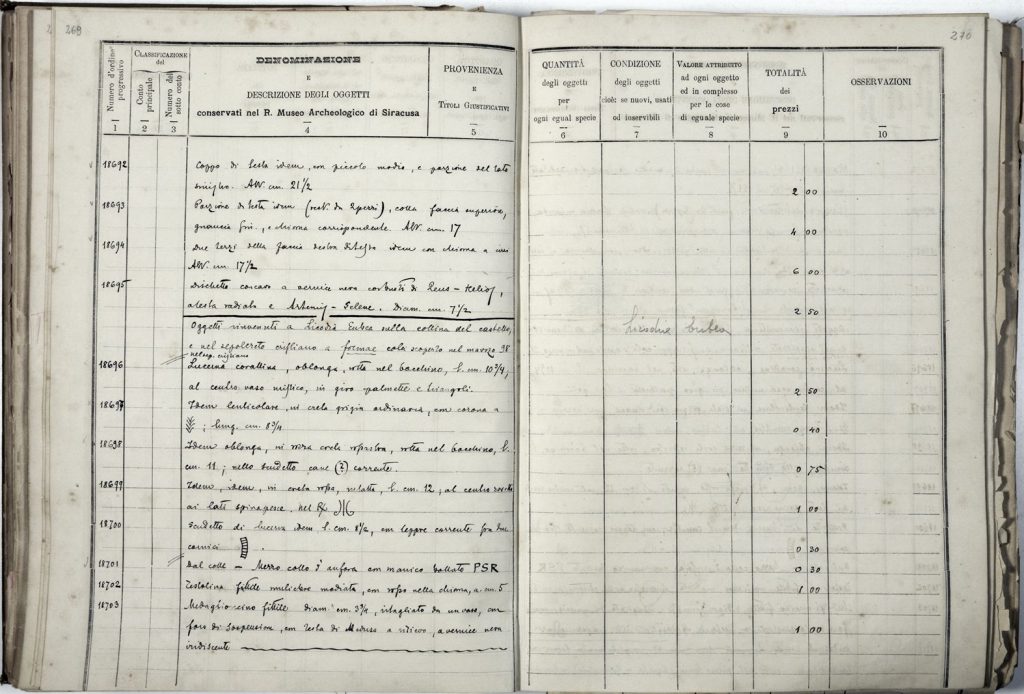 269
Numero d'ordine progressivo
CLASSIFICAZIONE
del
Conto principale
Numero del sotto conto
DENOMINAZIONE
E
DESCRIZIONE DEGLI OGGETTI
conservati nel R. Museo Archeologico di Siracusa
PROVENIENZA
E
TITOLI GIUSTIFICATIVI
1 2 3 4 5
18692 Coppo di testa idem, con piccolo modio, e porzione del lato
sinistro. Alt. cm. 21 1/2
18693 Porzione di testa idem (rest. da 2 pezzi), colla faccia superiore,
guancia sin., e chioma corrispondente. Alt. cm. 17
18694 Due terzi della faccia destra di testa idem con chioma a
Alt. cm. 17 1/2
18695 Dischetto concavo a vernice nera con busti di Zeus-Helios,
a testa radiata e Artemis-Selene. Diam. cm. 7 1/2
Oggetti rinvenuti a Licodia Eubea sulla collina del castello,
e nel sepolcreto a formae colà scoperto nel marzo 98
nel sep.
18696 Lucerna corallina, oblonga, rotta nel bocchino, l. cm. 10 3/4,
al centro vaso mistico, in giro palmette e triangoli.
18697 Idem lenticolare, in creta grigia ordinaria, con corona a
; lung. cm. 8 3/4
18698 Idem oblonga, in rozza creta rotta nel bocchino, l.
cm. 11; nello scudetto cane (?) corrente.
18699 Idem, idem, in creta rossa, l. cm. 12; al centro
ai lati spinapesce. nel
18700 Scudetto di lucerna idem l. cm. 8 1/2, con lepre corrente fra due
cornici
18701 Dal colle – Mezzo collo d'anfora con manico bollato PSR
18702 Testolina fittile muliebre modiata, con rosso nella chioma, a. cm. 5
18703 Medaglioncino fittile diam. cm. 3 3/4, ritagliato da un vaso, con
foro di sospensione, con testa di Medusa a rilievo, a vernice nera
iridiscente
270
QUANTITÀ
degli oggetti
per
ogni egual specie
CONDIZIONE
degli oggetti
cioè: se nuovi, usati
od inservibili
VALORE ATTRIBUTO
ad ogni oggetto
ed in complesso
per le cose
di eguale specie
TOTALITÀ
dei
prezzi
OSSERVAZIONI
6 7 8 9 10
2 00
4 00
6 00
2 50
Licodia Eubea
2 50
0 40
0 75
1 00
0 30
0 30
1 00
1 00